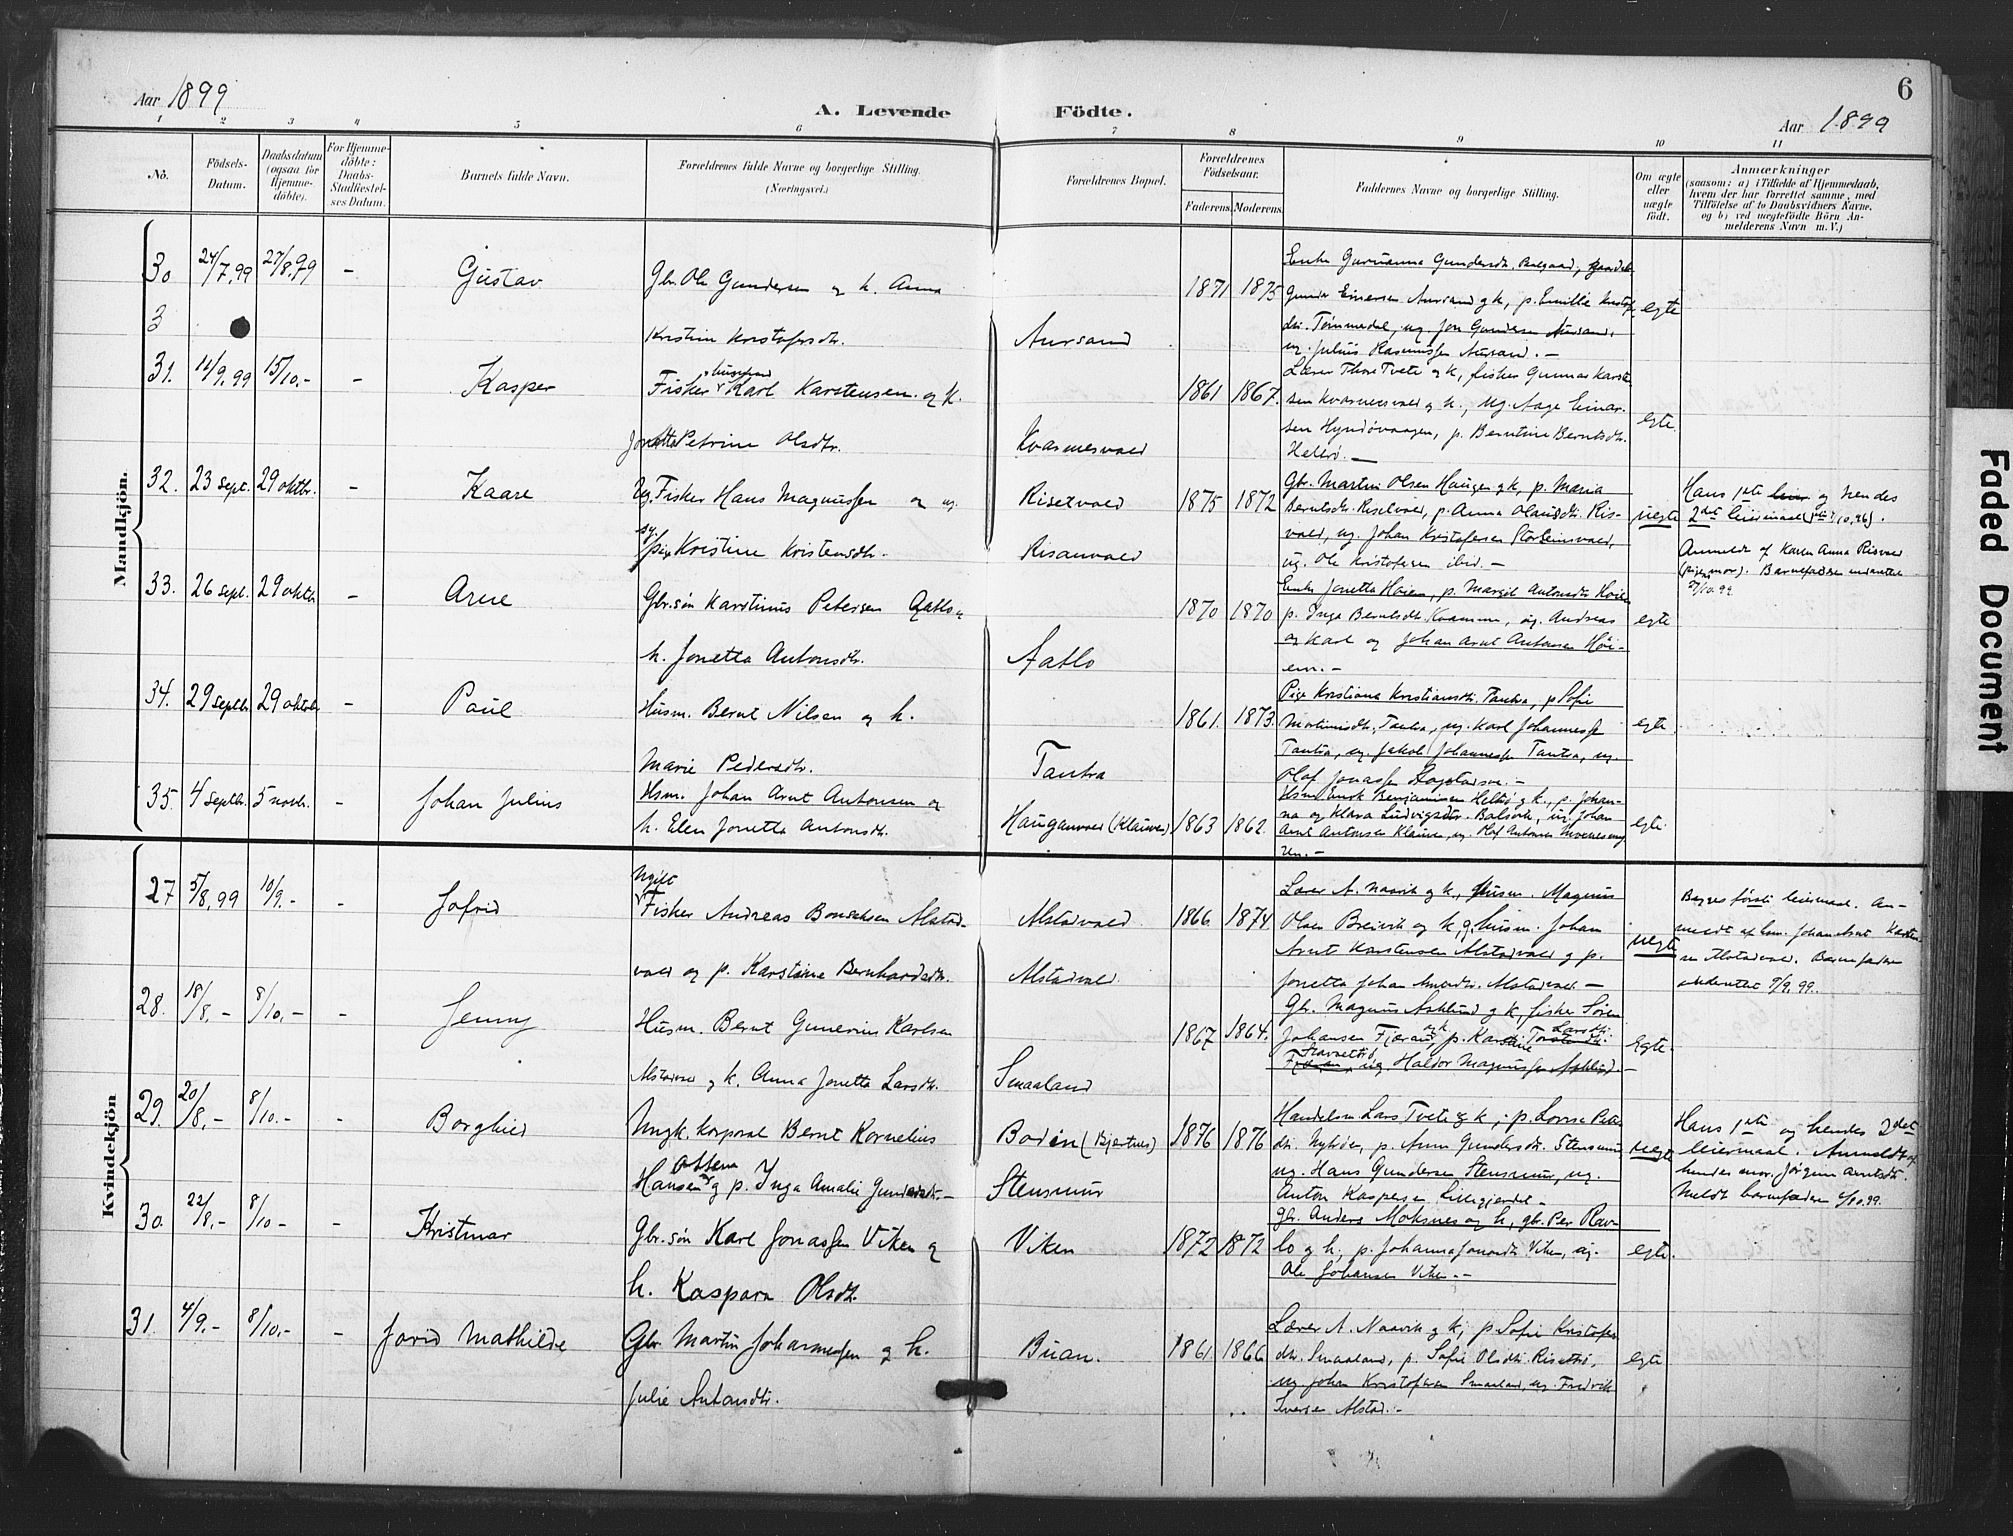 6
Aar 1899
A. Levende Födte.
Aar 1899
1 2 3 4 5 6 7 8 9 10 11
No.
Födsels-
Datum.
Daabsdatum
(ogsaa for
Hjemme-
döbte).
For Hjemme-
döbte:
Daabs-
Stadfæstel-
ses Datum.
Barnets fulde Navn.
Forældrenes fulde Navne og borgerlige Stilling.
(Næringsvei.)
Forældrenes Bopæl.
Forældrenes
Födselsaar.
Faderens. Moderens.
Faddernes Navne og borgerlige Stilling.
Om ægte
eller
uægte
födt.
Anmærkninger
(saasom: a) i Tilfælde af Hjemmedaab,
hvem der har forrettet samme, med
Tilföielse af to Daabsvidners Navne,
og b) ved uægtefödte Börn An-
melderens Navn m. V.)
Mandkjön.
30 24/7.99 27/8.99 - Gustav Gbr. Ole Gundersen og h. Anna
Kristine Kristofersdtr.
Aursand
1871 1875
egte
3
31. 11/9.99 15/10.- - Kasper Fisker Karl Karstensen og h.
Petrine Olsdtr.
Kvarnesvald
1861 1867.
Lærer Thore Tvete og k, fisker Gunnar Karst-
sen Kvarnesvald og k., ug. Aage Einar-
sen Hyndövaagen, p. Berntine Berntsdtr.
Hellesö. -
egte.
32. 23 sept. 29 oktbr. - Kaare Ug. Fisker Hans Magnussen og ug.
pige Kristine Kristensdtr.
Risetvald
Risanvald
1875 1872
Gbr. Martin Olsen Haugen og k, p. Maria
Berntsdtr. Risetvald, p. Anna Olausdtr. Ris-
vald, ug. Johan Kristofersen
ug. Ole Kristofersen ibid. -
uegte
Hans 1ste og hendes
2det leiermaal
Anmeldt af Karen Anna Risvald
(pigens mor). Barnefaderen underrettet
27/10.99.
33. 26 sept. 29 oktbr. - Arne Gbr.søn Karstinus Petersen Aatlo og
h. Jonetta Antonsdtr.
Aatlo
1870 1870
Enke Jonetta Höien, p. Margit Antonsdtr Höien
p. Inga Berntsdtr. Kvamme, ug. Andreas
og Karl og Johan Arnt Antonsen Höi-
en. -
egte
34. 29 septbr. 29 oktbr. - Paul Husm. Bernt Nilsen og h.
Marie Pedersdtr.
Tautra
1861. 1873.
Pige Kristiana Kristiansdtr. Tautra, p Sofie
Martinusdtr. Tautra, ug. Karl Johannessen
Tautra, ug. Jakob Johannessen Tautra, ug.
Olaf Jonassen
egte.
35. 4 septbr. 5 novbr. - Johan Julius Hsm. Johan Arnt Antonsen og
h. Elen Jonetta Antonsdtr.
Hauganvald (Klauven)
1863 1862.
Hsm. Enok Benjaminsen Hellesö og k., p. Johan-
na og Klara Ludvigsdtr. ug. Johan
Arnt Antonsen Klauven, ug. Olaf Antonsen
egte.
Kvindekjön
27 5/8.99 10/9.- - Jofrid Ugift
Fisker Andreas Bonsaksen Alstad-
vald og p. Karstine Bernhardsdtr.
Alstadvald
Alstadvald
1866 1874.
Lærer A. Naavik og k, husm. Magnus
Olsen Breivik og k og husm. Johan
Arnt Karstensen Alstadvald og p.
Jonetta Johan Arntsdtr. Alstadvald. -
uegte
Begges förste leiermaal. An-
meldt af hsm. Johan Arnt Karsten-
sen Alstadvald. Barnefaderen
underrettet 9/9.99.
28. 18/8.- 8/10.- - Jenny Husm. Bernt Gunerius Karlsen
Alstadvald og h. Anna Jonetta Larsdtr.
Smaaland
1867 1864.
Gbr. Magnus Asklund og k, fisker Sören
Johansen Fjæran og k, p. Karstine Larsdtr.
ug Haldor Magnussen Asklund. -
Egte.
29. 20/8.- 8/10.- - Borghild Ungk. korporal Bernt Kornelius
Hansen og p. Inga Amalie Gundersdtr.
Bodin (Bjertnes)
Stensmur
1876 1876
Handelsm Lars Tvete og k, p. Lovise Peters-
dtr. Nyhröen, p. Anna Gundersdtr. Stensmur
ug. Hans Gundersen Stensmur, ug.
Anton Kaspersen Lillegjerdet -
uegte
Hans 1ste og hendes 2det
leiermaal. Anmeldt af
hendes mor, Jörgine Arntsdtr.
Meldt barnefaderen 6/10.99.
30. 22/8.- 8/10- - Kristmar Gbr.søn Karl Jonassen Viken og
h. Kaspara Olsdtr.
Viken
1872 1872
Gbr. Anders Moksnes og h, gbr. Per Rav-
lo og h, p. Johanna Jonasdtr. Viken, ug.
Ole Johansen Viken. -
egte.
31. 4/9.- 8/10.- - Jorid Mathilde Gbr. Martin Johannessen og h.
Julie Antonsdtr.
Buan.
1861. 1866
Lærer A. Naavik og k, p Sofie Kristofer-
dtr. Smaaland, p. Sofie Olsdtr. Risettrö,
ug Johan Kristofersen Smaaland, ug. Fredrik
Iversen Alstad. -
egte
Faded Document